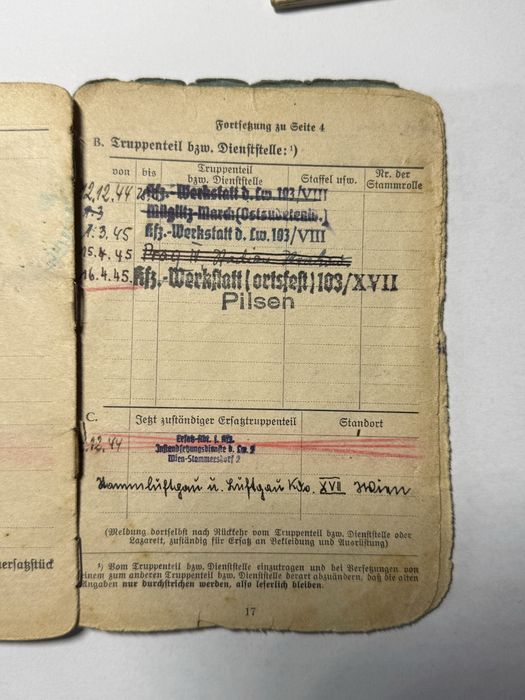 Fortsetzung zu Seite 4
B. Truppenteil bzw. Dienststelle: ¹)
von bis Truppenteil bzw. Dienststelle Staffel usw. Nr. der Stammrolle
2.12.44 Kfz.-Werkstatt d. Lw. 103/VIII
Müglitz-March (Ostsudetenld.)
1.3.45 Kfz.-Werkstatt d. Lw. 103/VIII
15.4.45 Prag II
16.4.45. Kfz.-Werkstatt (ortsfest) 103/XVII
Pilsen
C. Jetzt zuständiger Ersatztruppenteil Standort
.12.44 Ersatz-Abt. f. Kfz.
Instandsetzungsdienste d. Lw. 2
Wien-Stammersdorf 2
Stammluftgau u. Luftgau Kdo. XVII Wien
(Meldung dortselbst nach Rückkehr vom Truppenteil bzw. Dienststelle oder
Lazarett, zuständig für Ersatz an Bekleidung und Ausrüstung)
¹) Vom Truppenteil bzw. Dienststelle einzutragen und bei Versetzungen von
einem zum anderen Truppenteil bzw. Dienststelle derart abzuändern, daß die alten
Angaben nur durchstrichen werden, also leserlich bleiben.
17
ersatzstück